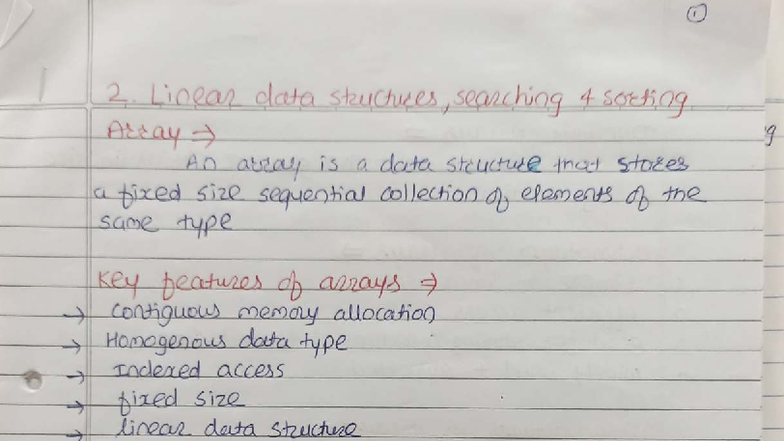 1
2. Linear data structures, searching & sorting
Array ⇒
An array is a data structure that stores
a fixed size sequential collection of elements of the
same type
Key features of arrays ⇒
→ contiguous memory allocation
→ Homogenous data type
→ Indexed access
→ fixed size
→ linear data structure